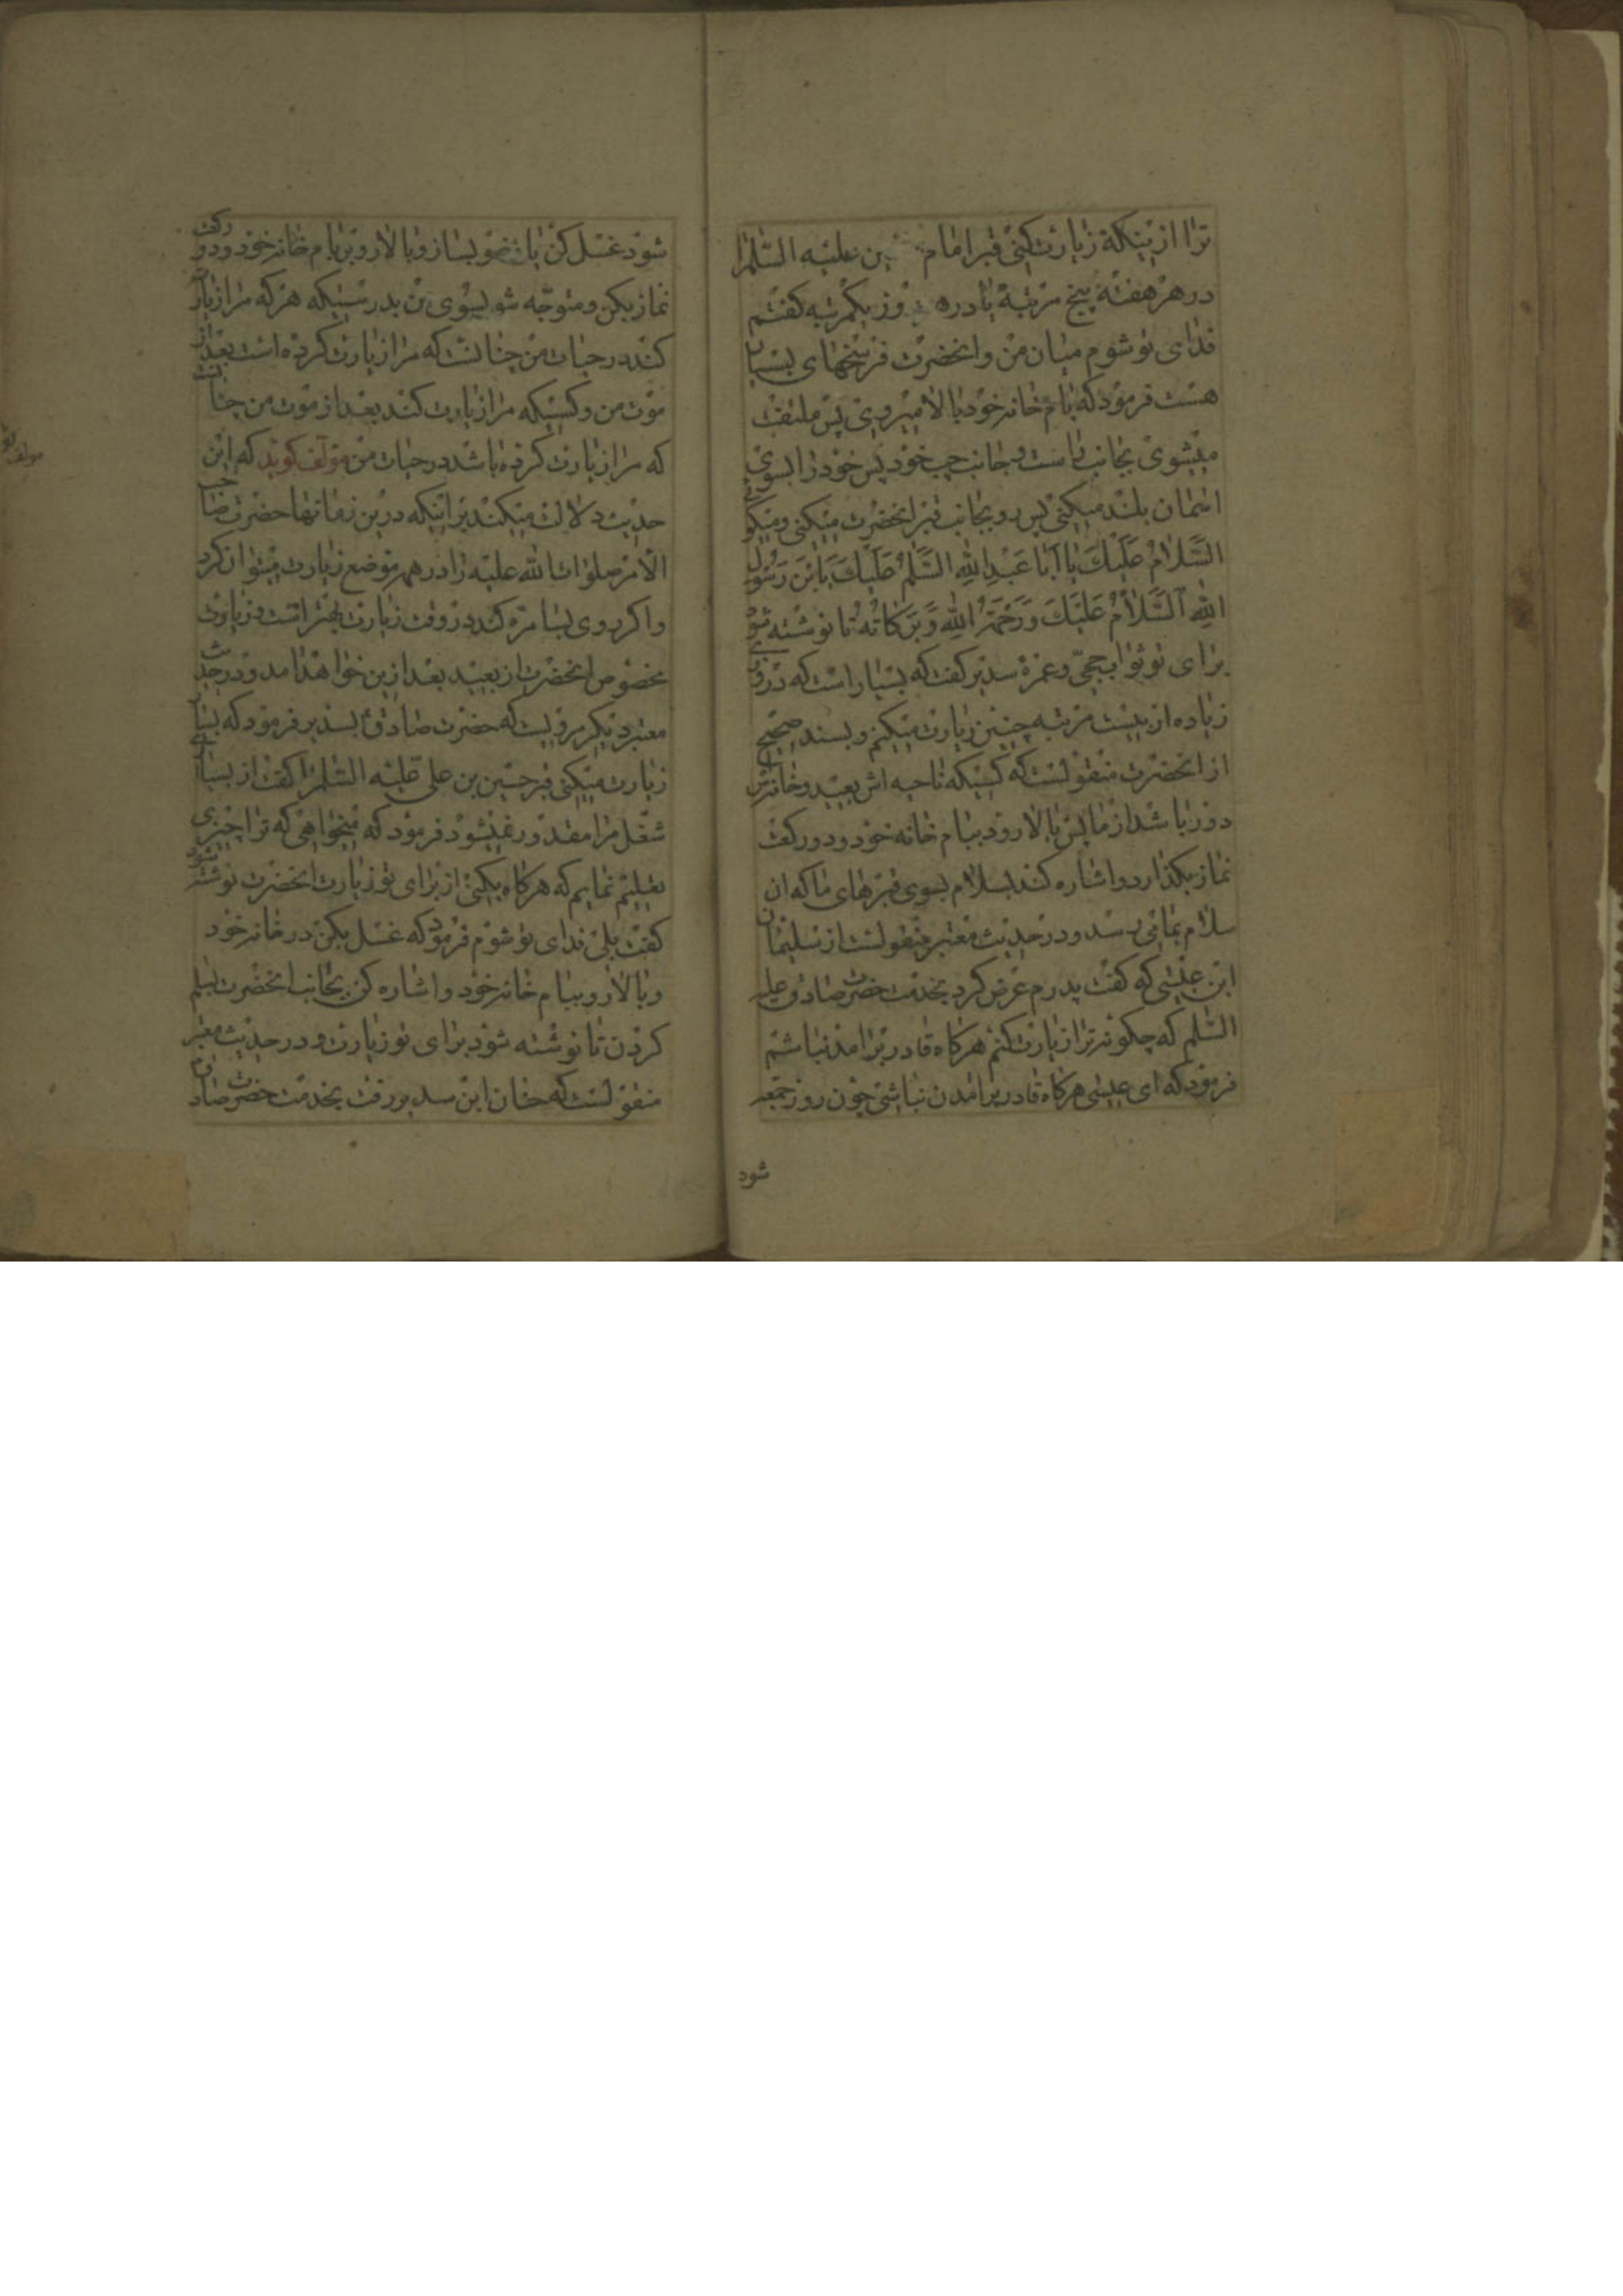 ترا از پنکه زیارت کنی قبر امام ین علیه السّلمرا
در هر هفته پنج مرتبه یا در ه وز یکمرتبه کفتم
فدای تو شوم میان من و انحضرت فرسخهای بسیار
هست فرمود که بام خانه خود بالا میروی پس ملتفت
میشوی بجانب راست و جانب چپ خود پس خود را بسوی
اسمان بلند میکنی پس رو بجانب قبر انحضرت میکنی و میکوئی
السَّلامُ عَلَیْكَ یا اَبا عَبْدِ اللهِ السَّلمُ عَلَیْكَ یَابْنَ رَسُولِ
اللهِ اَلسَّلاٰمُ عَلَیْكَ وَرَحْمَةُ اللهِ وَبَرَکاتُهُ تا نوشته شود
برای تو ثواب حجّی و عمرۀ سدیر کفت که بسیار است که در روزی
زیاده از بیست مرتبه چنین زیارت میکنم و بسند صحیح
از انحضرت منقولست که کسیکه ناحیه اش بعید و خانه اش
دور باشد از ما پس بالا رود ببام خانه خود و دو رکعت
نماز بکذارد و اشاره کند بسلام بسوی قبرهای ما که ان
سلام بما می رسد و در حدیث معتبر منقولست از سلیمان
ابن عیسی که کفت پدرم عرض کرد بخدمت حضرت صادق علیه
السّلم که چکونه ترا زیارت کنم هرکاه قادر بر امدن نباشم
فرمود که ای عیسی هرکاه قادر بر امدن نباشی چون روز جمعه
شود
شود غسل کن یا وضو بساز و بالا رو بر بام خانه خود و دو رکعت
نماز بکن و متوجّه شو بسوی من بدرستیکه هرکه مرا زیارت
کند در حیات من چنانست که مرا زیارت کرده است بعد از
موت من و کسیکه مرا زیارت کند بعد از موت من چنانست
که مرا زیارت کرده باشد در حیات من مؤلف کوید که این
حدیث دلالت میکند بر اینکه درین زمانها حضرت صاحب
الامر صلوات الله علیه را در همه موضع زیارت میتوان کرد
و اکر روی بسامره کند در وقت زیارت بهتر است و زیارت
مخصوص انحضرت از بعید بعد ازین خواهد امد و در حدیث
معتبر دیکر مرویست که حضرت صادق بسدیر فرمود که بسیار
زیارت میکنی قبر حسین بن علی علیه السّلمرا کفت از بسیاری
شغل مرا مقدور نمیشود فرمود که میخواهی که ترا چیزی
تعلیم نمایم که هرکاه بکنی از برای تو زیارت انحضرت نوشته شود
کفت بلی فدای تو شوم فرمود که غسل بکن در خانه خود
و بالا رو ببام خانه خود و اشاره کن بجانب انحضرت بسلم
کردن تا نوشته شود برای تو زیارت و در حدیث معتبر
منقولست که حنان ابن سدیر رفت بخدمت حضرت صادق